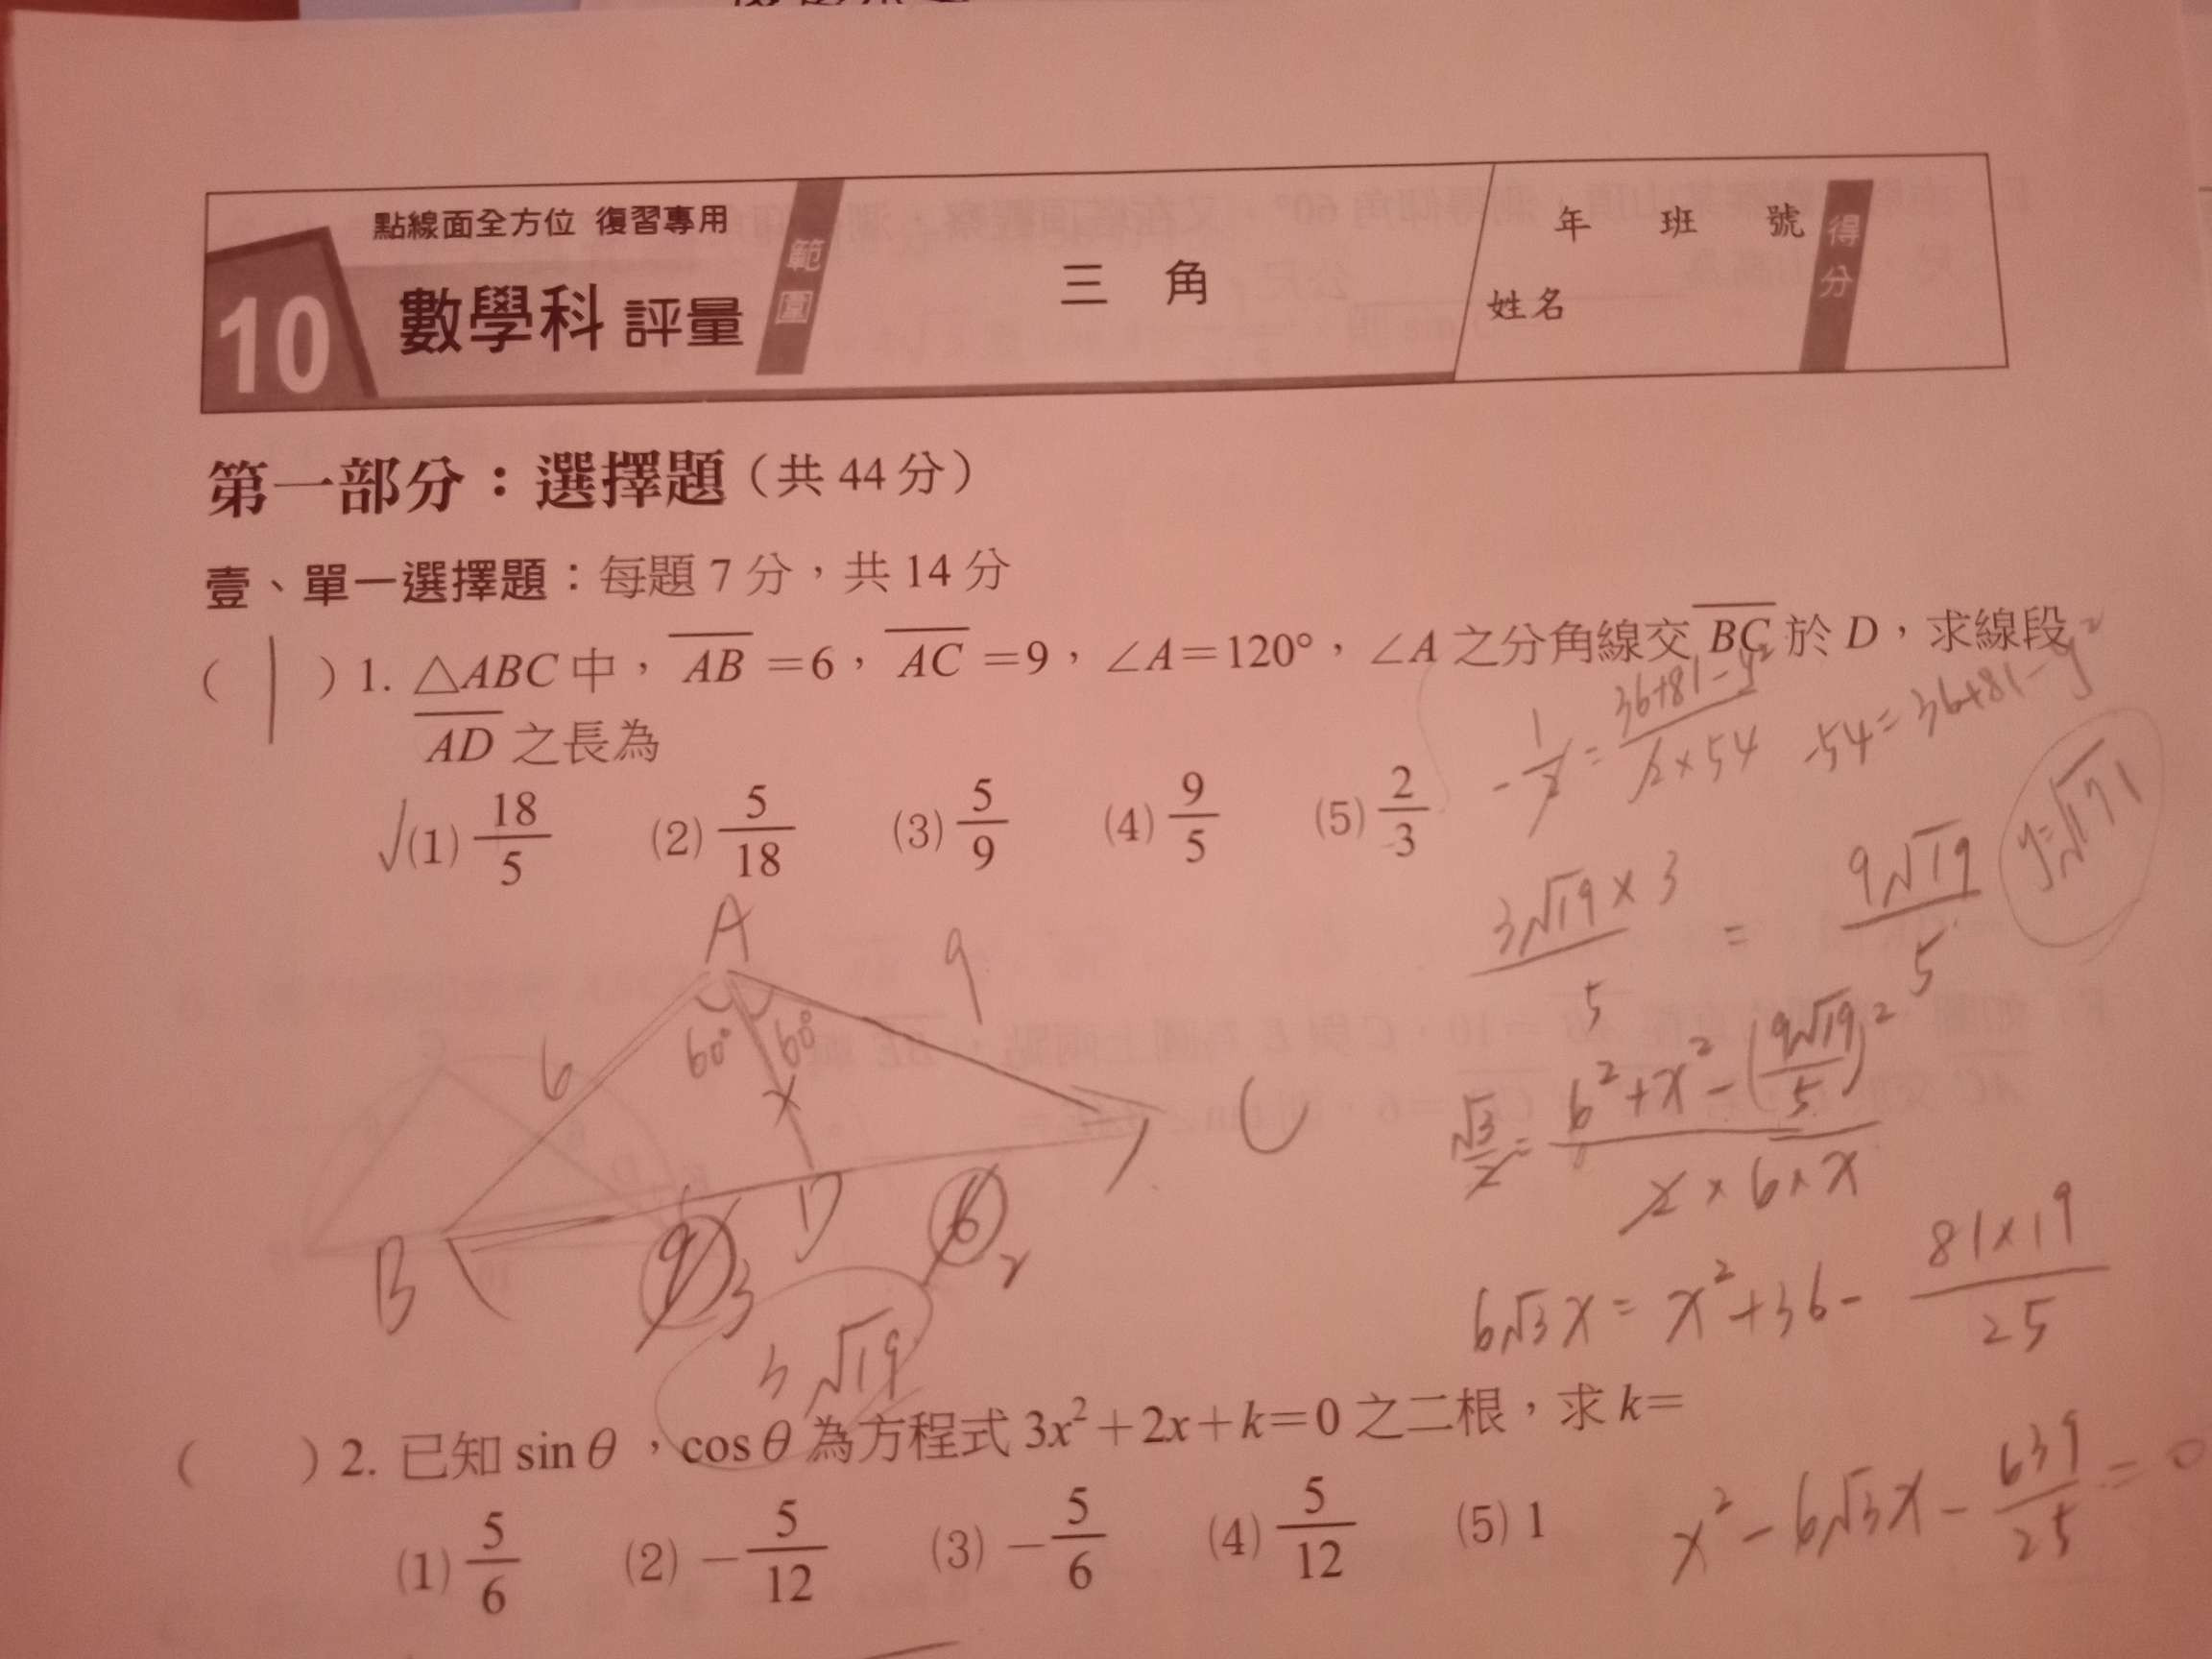 點線面全方位 復習專用
10 數學科 評量
範圍
三 角
年 班 號
姓名
得分
第一部分：選擇題（共 44 分）
壹、單一選擇題：每題 7 分，共 14 分
( | ) 1. △ABC 中， \overline{AB} =6， \overline{AC} =9，∠A=120°，∠A 之分角線交 \overline{BC} 於 D，求線段
\overline{AD} 之長為
√(1) 18/5 (2) 5/18 (3) 5/9 (4) 9/5 (5) 2/3
-1/2 = 36+81-y²/2×54
-54=36+81-y²
y=√171
3√19×3/5 = 9√19/5
A
9
6
60° 60°
x
C
B
9
3
D
6
2
3√19
√3/2 = 6²+x²-(9√19/5)²/2×6×x
6√3x = x²+36- 81×19/25
( ) 2. 已知 sin θ ，cos θ 為方程式 3x²+2x+k=0 之二根，求 k=
(1) 5/6 (2) -5/12 (3) -5/6 (4) 5/12 (5) 1
x²-6√3x- 639/25 =0